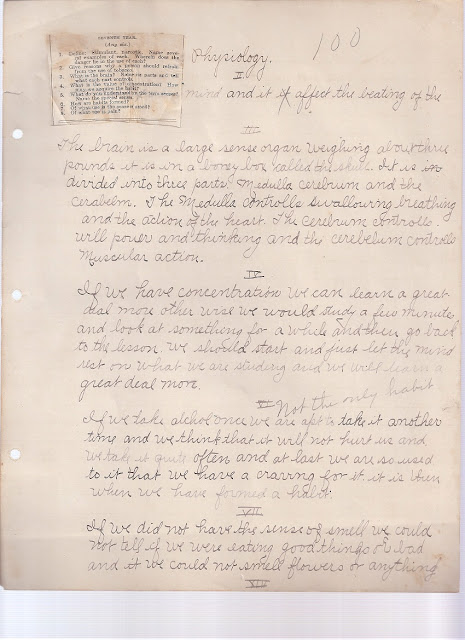 SEVENTH YEAR.
(Age 12.)
1. Define: Stimulant, narcotic. Name several examples of each. Wherein does the danger lie in the use of each?
2. Give reasons why a person should refrain from the use of tobacco.
3. What is the brain? Name its parts and tell what each part controls.
4. What is the value of concentration? How may we acquire the habit?
5. What do you understand by the term
Name the special senses.
6. How are habits formed?
7. Of what use is the sense of smell?
8. Of what use is pain?
Physiology.
100
II
mind and it if affect the beating of the
III
The brain is a large sense organ weighing about three
pounds it is in a boney box called the skull. It is in
divided into three parts Medulla cerebrum and the
cerabelm. The Medulla controlls swallouring breathing
and the action of the heart. The Cerebrum controlls.
will power and thinking and the cerebelum controlls
Muscular action.
IV
If we have concentration we can learn a great
deal more other wise we would study a few minute
and look at something for a while and then go back
to the lesson. We should start and just let the mind
rest on what we are studing and we will learn a
great deal more.
VI Not the only habit
If we take alchol once we are apt to take it another
time and we think that it will not hurt us and
we take it quite often and at last we are so used
to it that we have a craving for it it is then
when we have formed a habit.
VII
If we did not have the sense of smell we could
not tell if we were eating good things or bad
and it we could not smell flowers or anything